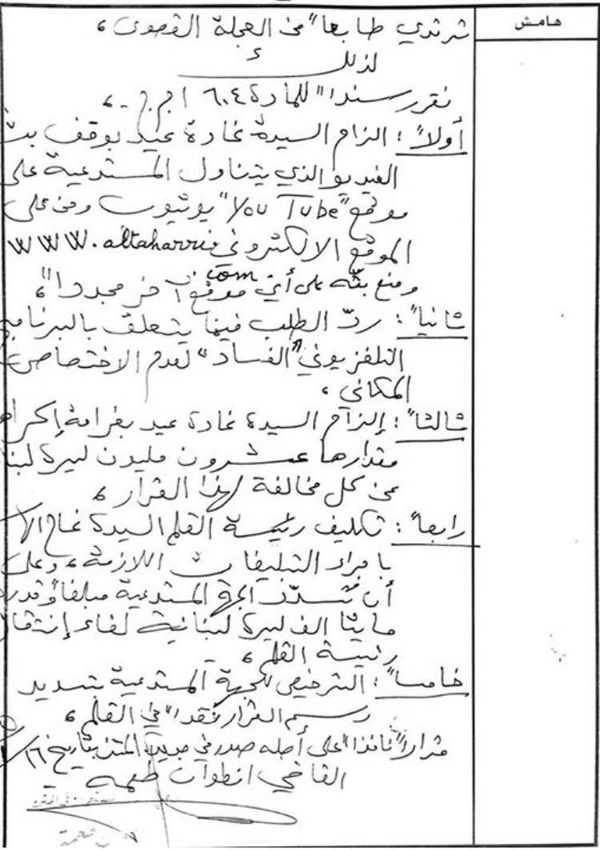 هامش
ترتدي طابعاً من العجلة القصوى،
لذلك
نقرر سنداً للمادة ٦٠٤ أ.م.م.،
أولاً: الزام السيدة غادة عيد بوقف بث
الفيديو الذي يتناول المستدعية على
موقع "You Tube" يوتيوب ومن على
الموقع الالكتروني www.altaharri
com
ومنع بثه على أي موقع آخر مجدداً،
ثانياً: ردّ الطلب فيما يتعلق بالبرنامج
التلفزيوني "الفساد" لعدم الاختصاص
المكاني.
ثالثاً: إلزام السيدة غادة عيد بغرامة إكراهية
مقدارها عشرون مليون ليرة لبنانية
عن كل مخالفة لهذا القرار،
رابعاً: تكليف رئيسة القلم السيدة
بإجراء التبليغات اللازمة، وعلى
أن تسدّد الجهة المستدعية مبلغاً وقدره
مايتا الف ليرة لبنانية لقاء إنتقال
رئيسة القلم،
خامساً: الترخيص للجهة المستدعية بتسديد
رسم القرار نقداً في القلم،
قراراً نافذاً على أصله صدر في جديدة المتن بتاريخ
القاضي انطوان طعمه